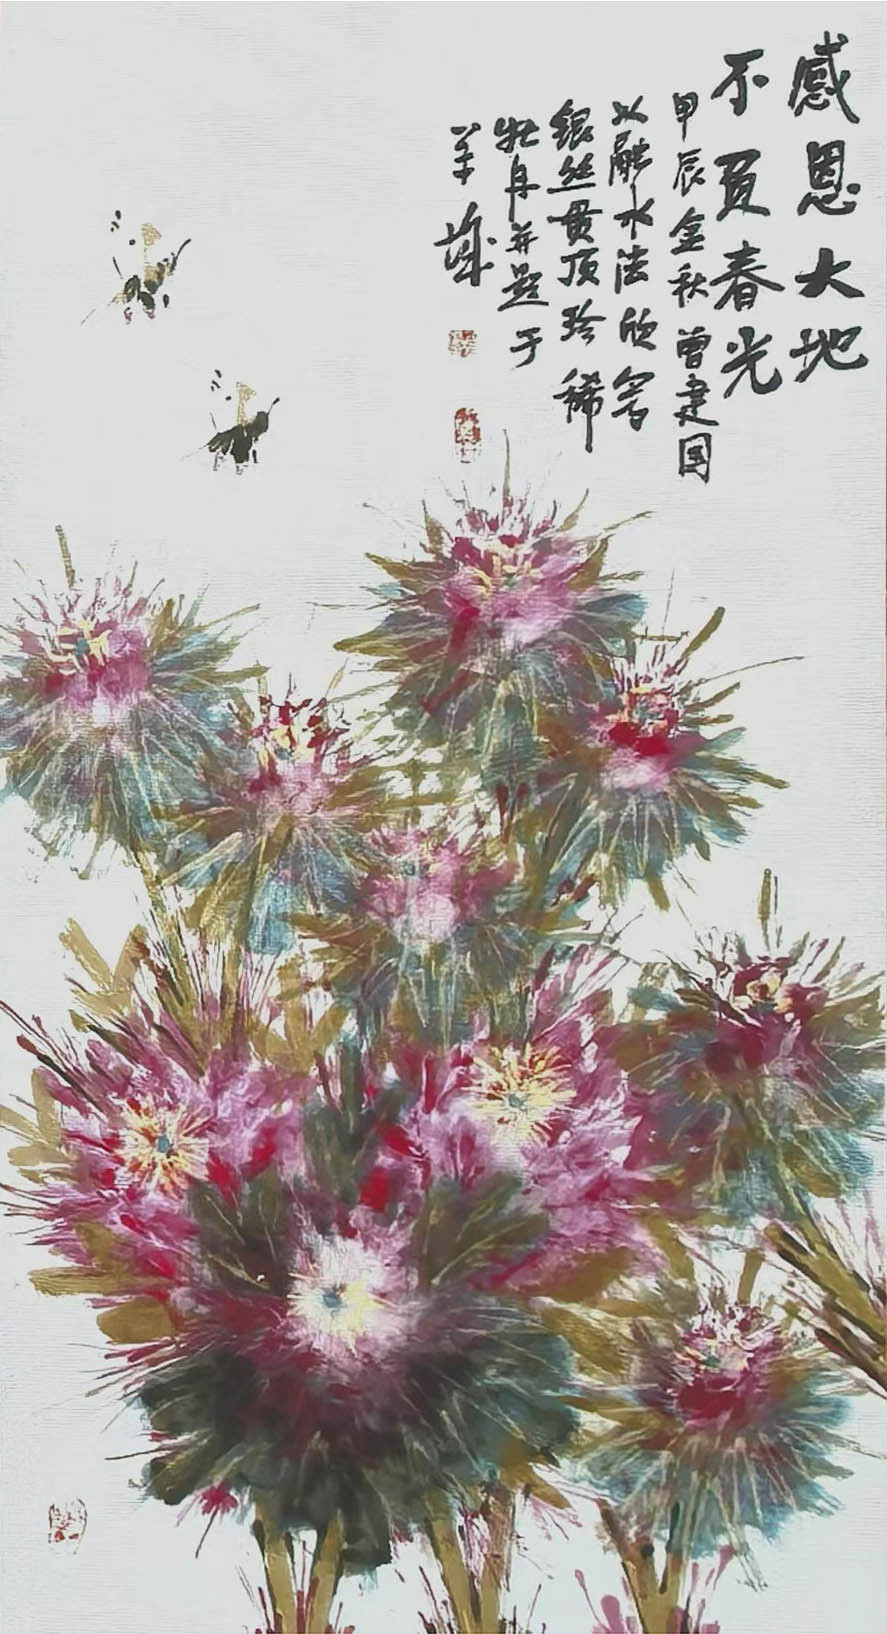 感恩大地
不負春光
甲辰金秋曾建国
以融水法欣写
银丝贯顶珍稀
牡丹并题于
羊城